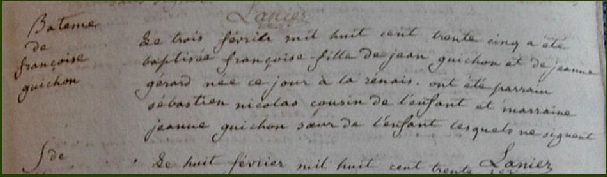 Lanier
Bateme
de
françoise
guichon
Le trois février mil huit cent trente cinq a été
baptisée françoise fille de jean guichon et de jeanne
gerard née ce jour à la renais. ont été parrain
sébastien nicolas cousin de l'enfant et marraine
jeanne guichon sœur de l'enfant lesquels ne signent
Lanier
S. de
Le huit février mil huit cent trente